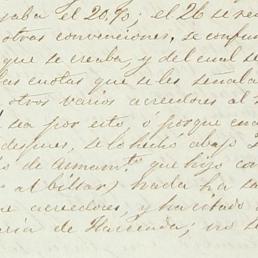 el 20. %; el 26 se re
otras convenciones, se confun
que se creaba, y del cual se
las cuotas que se les señala
otros varios acreedores al
sea por esto, ó porque cua
despues, se lo hecho abajo
de Armamto. que hizo con
al billar; nada ha sa
acreedores, y ha citado
de Hacienda; no se